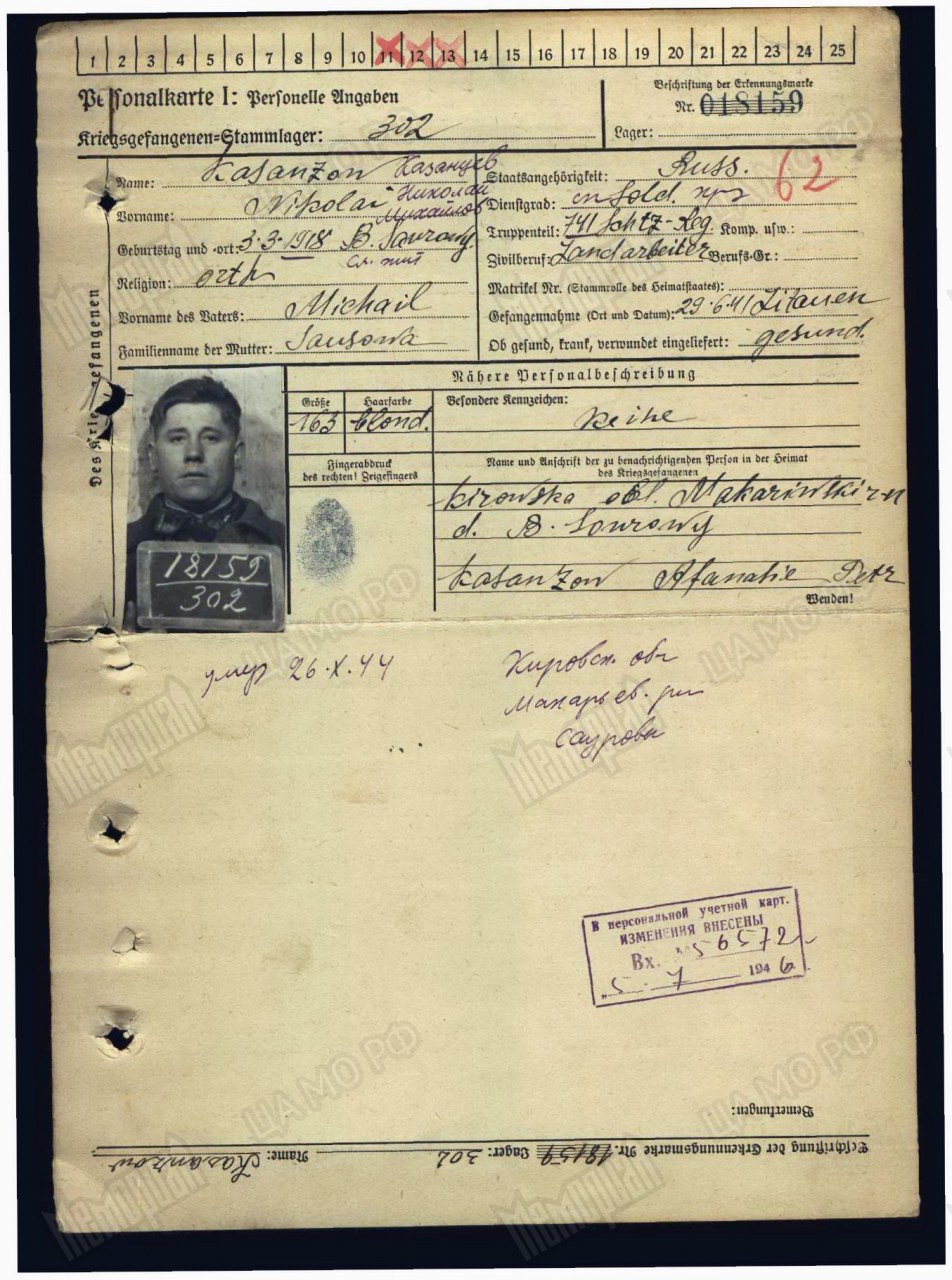 1 2 3 4 5 6 7 8 9 10 11 12 13 14 15 16 17 18 19 20 21 22 23 24 25
Personalkarte I: Personelle Angaben
Beschriftung der Erkennungsmarke
Nr. 018159
Kriegsgefangenen=Stammlager: 302
Lager:
Des Kriegsgefangenen
Name: Kasanzow Казанцев
Vorname: Nikolai Николай
Михайлов
Geburtstag und -ort: 3.3.1918 B. Saurowy
Religion: orth
Vorname des Vaters: Michail
Familienname der Mutter: Sausowa
Staatsangehörigkeit: Russ.
62
Dienstgrad: Sold.
Truppenteil: 741 Schtz-Reg. Komp. usw.:
Zivilberuf: Landarbeiter Berufs-Gr.:
Matrikel Nr. (Stammrolle des Heimatstaates):
Gefangennahme (Ort und Datum): 29.6.41 Litauen
Ob gesund, krank, verwundet eingeliefert: gesund.
Nähere Personalbeschreibung
Größe
163
Haarfarbe
blond.
Besondere Kennzeichen:
Keine
Fingerabdruck
des rechten! Zeigefingers
Name und Anschrift der zu benachrichtigenden Person in der Heimat
des Kriegsgefangenen
Kirowska obl. Makariwski r-n
d. B. Sourowy
Kasanzow Afanasie Petr
Wenden!
18159
302
умер 26.X.44
Кировск. обл
Макарьев. р-н
Сауровы
В персональной учетной карт.
ИЗМЕНЕНИЯ ВНЕСЕНЫ
Вх. № 56572
„5“ 7 1946
Bemerkungen:
Beschriftung der Erkennungsmarke Nr. 18159 Lager: 302 Name: Kasanzow
Мемориал
ЦАМО РФ